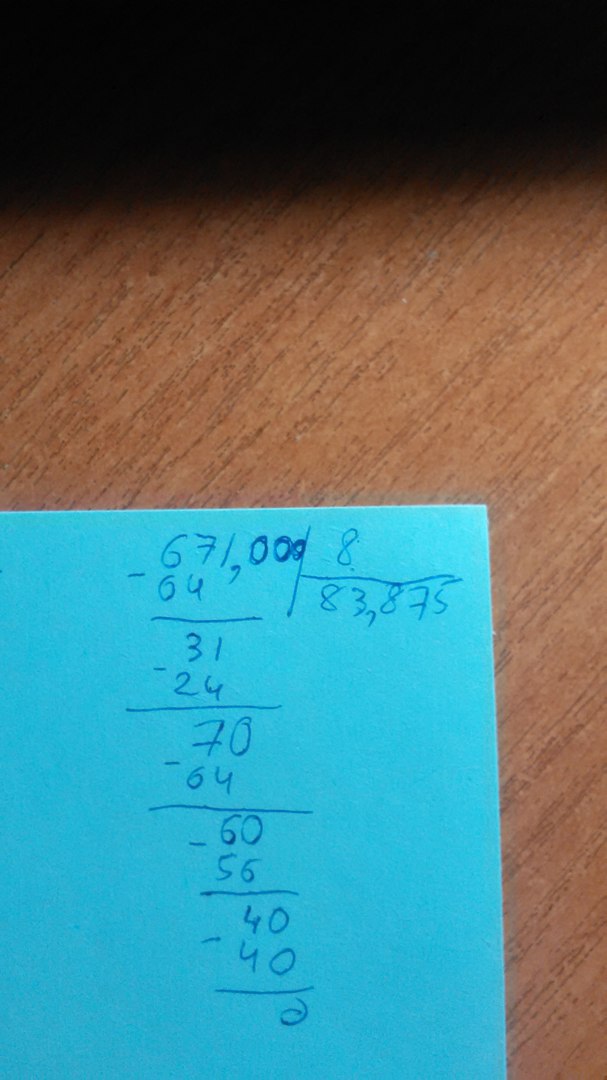 671,000 8
- 64 83,875
31
- 24
70
- 64
- 60
56
40
- 40
0